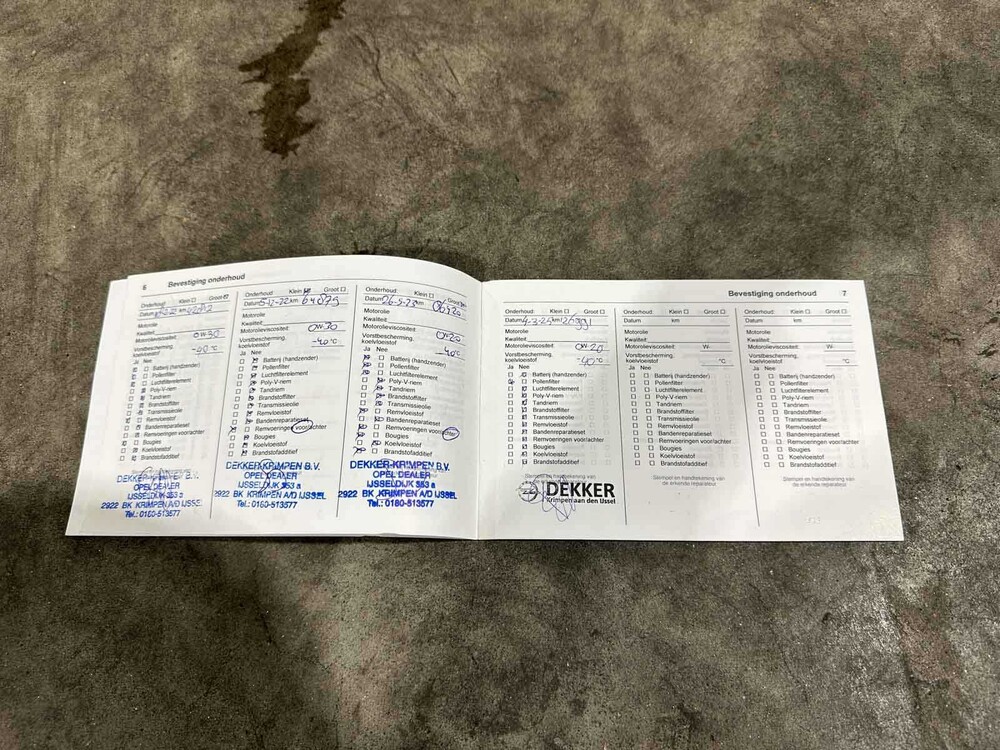 6 Bevestiging onderhoud
Onderhoud: Klein Groot
Datum km
Motorolie
Kwaliteit
Motorolieviscositeit: 0W30
Vorstbescherming,
koelvloeistof
Ja Nee
Batterij (handzender)
Pollenfilter
Luchtfilterelement
Poly-V-riem
Tandriem
Brandstoffilter
Transmissieolie
Remvloeistof
Bandenreparatieset
Remvoeringen voor/achter
Bougies
Koelvloeistof
Brandstofadditief
DEKKER-KRIMPEN B.V.
OPEL DEALER
IJSSELDIJK 353 a
2922 BK KRIMPEN A/D IJSSEL
Tel.: 0180-513577
Onderhoud: Klein Groot
Datum 5-12-22 km 64879
Motorolie
Kwaliteit
Motorolieviscositeit: 0W-30
Vorstbescherming,
koelvloeistof -40°C
Ja Nee
Batterij (handzender)
Pollenfilter
Luchtfilterelement
Poly-V-riem
Tandriem
Brandstoffilter
Transmissieolie
Remvloeistof
Bandenreparatieset
Remvoeringen voor/achter
Bougies
Koelvloeistof
Brandstofadditief
DEKKER-KRIMPEN B.V.
OPEL DEALER
IJSSELDIJK 353 a
2922 BK KRIMPEN A/D IJSSEL
Tel.: 0180-513577
Onderhoud: Klein Groot
Datum km
Motorolie
Kwaliteit
Motorolieviscositeit: 0W20
Vorstbescherming,
koelvloeistof -40°C
Ja Nee
Batterij (handzender)
Pollenfilter
Luchtfilterelement
Poly-V-riem
Tandriem
Brandstoffilter
Transmissieolie
Remvloeistof
Bandenreparatieset
Remvoeringen
Bougies
Koelvloeistof
Brandstofadditief
DEKKER-KRIMPEN B.V.
OPEL DEALER
IJSSELDIJK 353 a
2922 BK KRIMPEN A/D IJSSEL
Tel.: 0180-513577
Bevestiging onderhoud 7
Onderhoud: Klein Groot
Datum km
Motorolie
Kwaliteit
Motorolieviscositeit: 0W-20
Vorstbescherming,
koelvloeistof -40°C
Ja Nee
Batterij (handzender)
Pollenfilter
Luchtfilterelement
Poly-V-riem
Tandriem
Brandstoffilter
Transmissieolie
Remvloeistof
Bandenreparatieset
Remvoeringen voor/achter
Bougies
Koelvloeistof
Brandstofadditief
DEKKER
Krimpen aan den IJssel
Onderhoud: Klein Groot
Datum km
Motorolie
Kwaliteit
Motorolieviscositeit: W-
Vorstbescherming,
koelvloeistof °C
Ja Nee
Batterij (handzender)
Pollenfilter
Luchtfilterelement
Poly-V-riem
Tandriem
Brandstoffilter
Transmissieolie
Remvloeistof
Bandenreparatieset
Remvoeringen voor/achter
Bougies
Koelvloeistof
Brandstofadditief
Stempel en handtekening van
de erkende reparateur
Onderhoud: Klein Groot
Datum km
Motorolie
Kwaliteit
Motorolieviscositeit: W-
Vorstbescherming,
koelvloeistof °C
Ja Nee
Batterij (handzender)
Pollenfilter
Luchtfilterelement
Poly-V-riem
Tandriem
Brandstoffilter
Transmissieolie
Remvloeistof
Bandenreparatieset
Remvoeringen voor/achter
Bougies
Koelvloeistof
Brandstofadditief
Stempel en handtekening van
de erkende reparateur